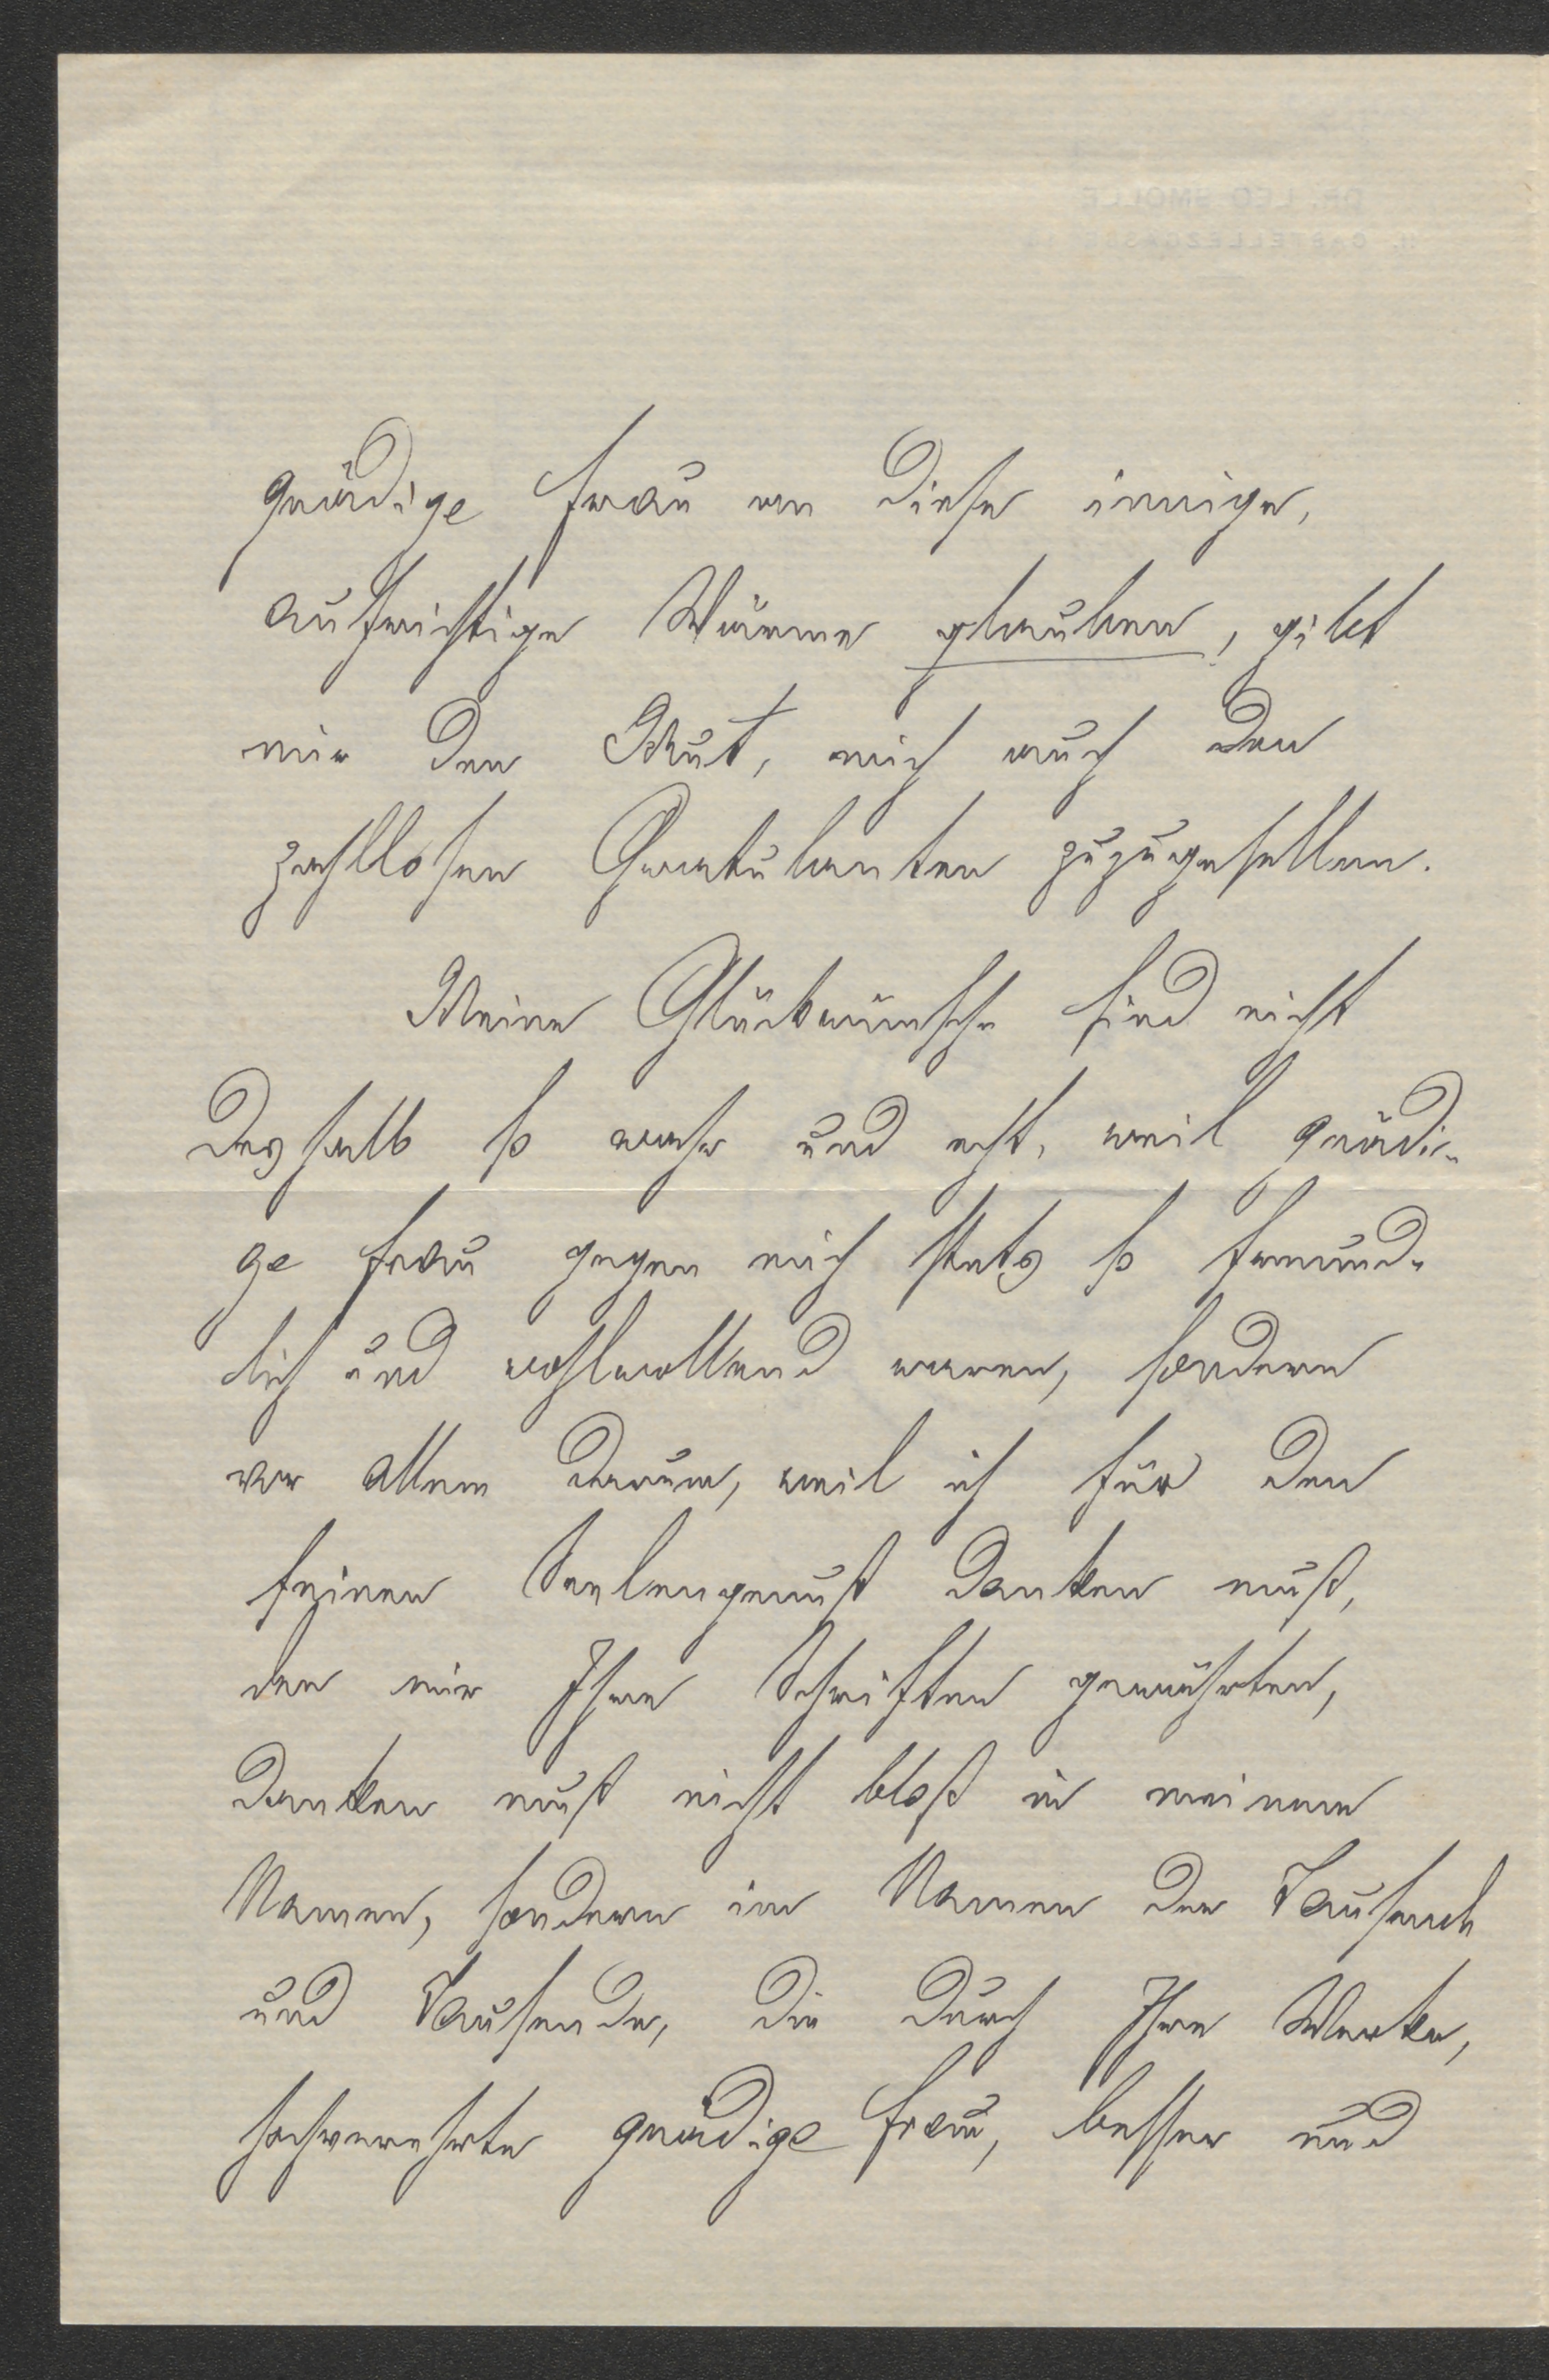 gnädige Frau an diese innige,
aufrichtige Wärme glauben, gibt
mir den Mut, mich auch den
zahllosen Gratulanten zuzugesellen.
Meine Glückwünsche sind nicht
deshalb so wahr und echt, weil gnädi-
ge Frau gegen mich stets so freund-
lich und wohlwollend waren, sondern
vor allem darum, weil ich für den
feinen Seelengenuß danken muß,
den mir Ihre Schriften gewährten,
danken muß nicht bloß in meinem
Namen, sondern im Namen der Tausende
und Tausende, die durch Ihre Werke,
hochverehrte gnädige Frau, besser und